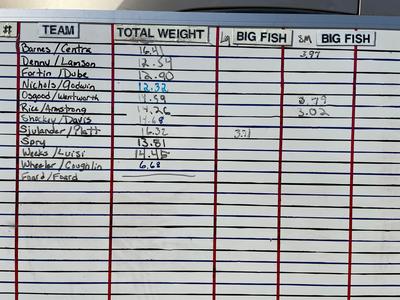 # TEAM TOTAL WEIGHT Lg BIG FISH SM BIG FISH
Barnes/Centra 16.41 3.97
Denny/Lamson 12.54
Fortin/Dube 12.90
Nichols/Godwin 12.32
Osgood/Wentworth 14.59 3.79
Rice/Armstrong 14.26 3.02
Shockey/Davis 14.68
Sjulander/Platt 16.32 3.71
Spry 13.81
Weeks/Luisi 14.45
Wheeler/Coughlin 6.68
Foard/Foard